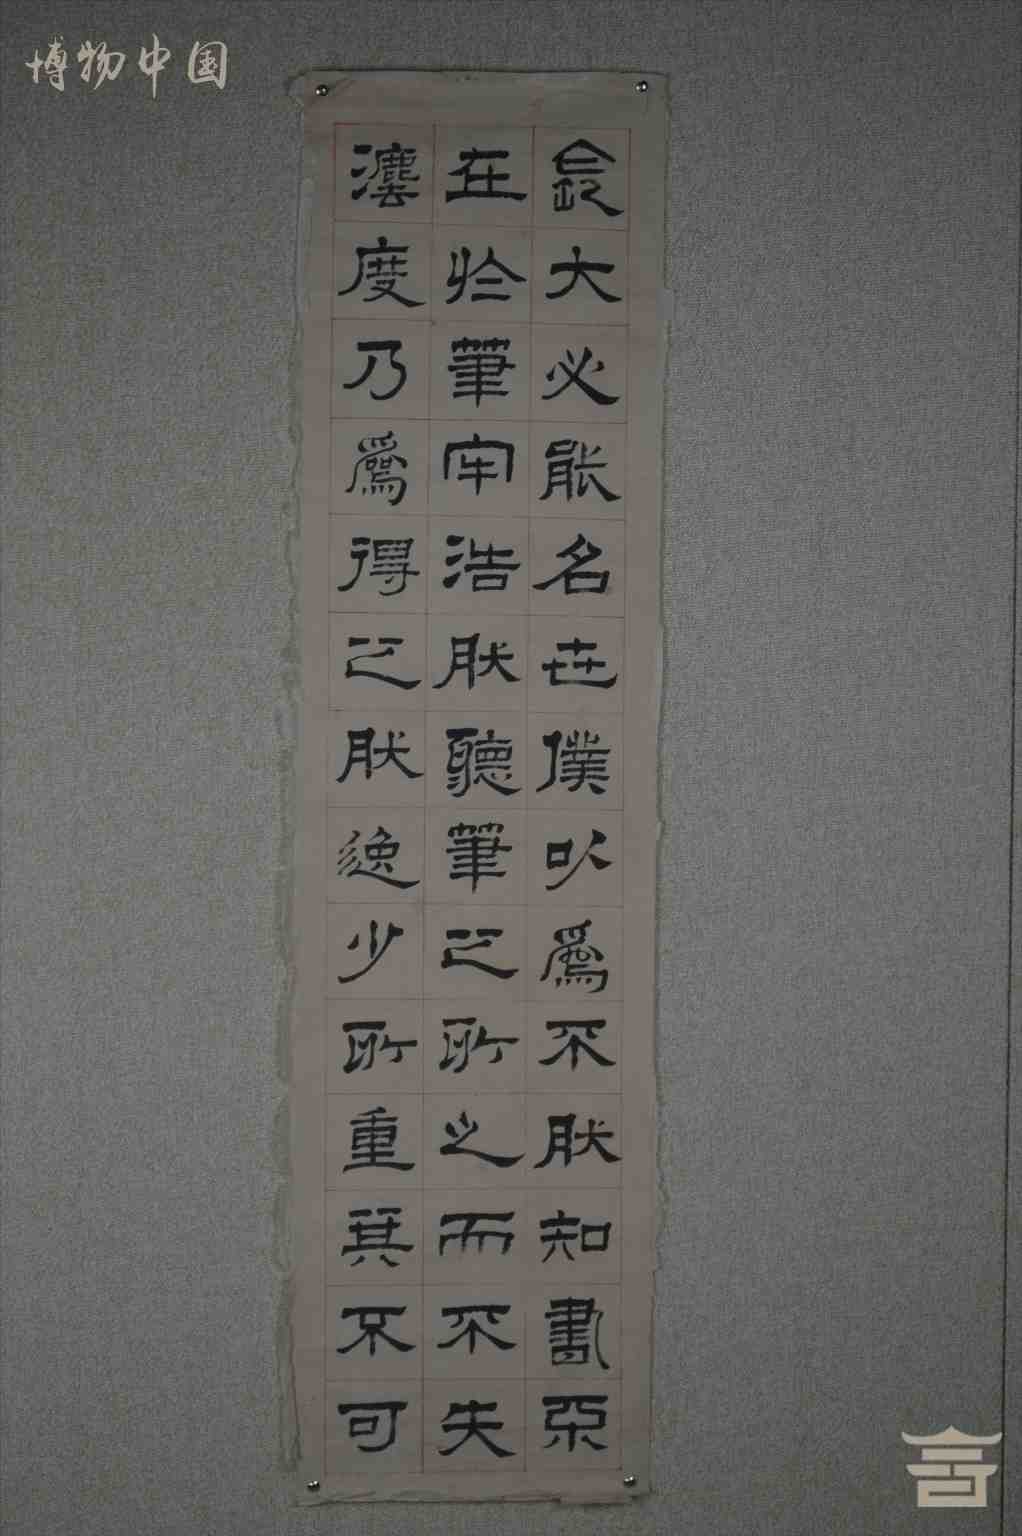 博物中国
長大必能名世僕以爲不肰知書不
在於筆牢浩肰聽筆之所之而不失
灋度乃爲得之肰逸少所重其不可